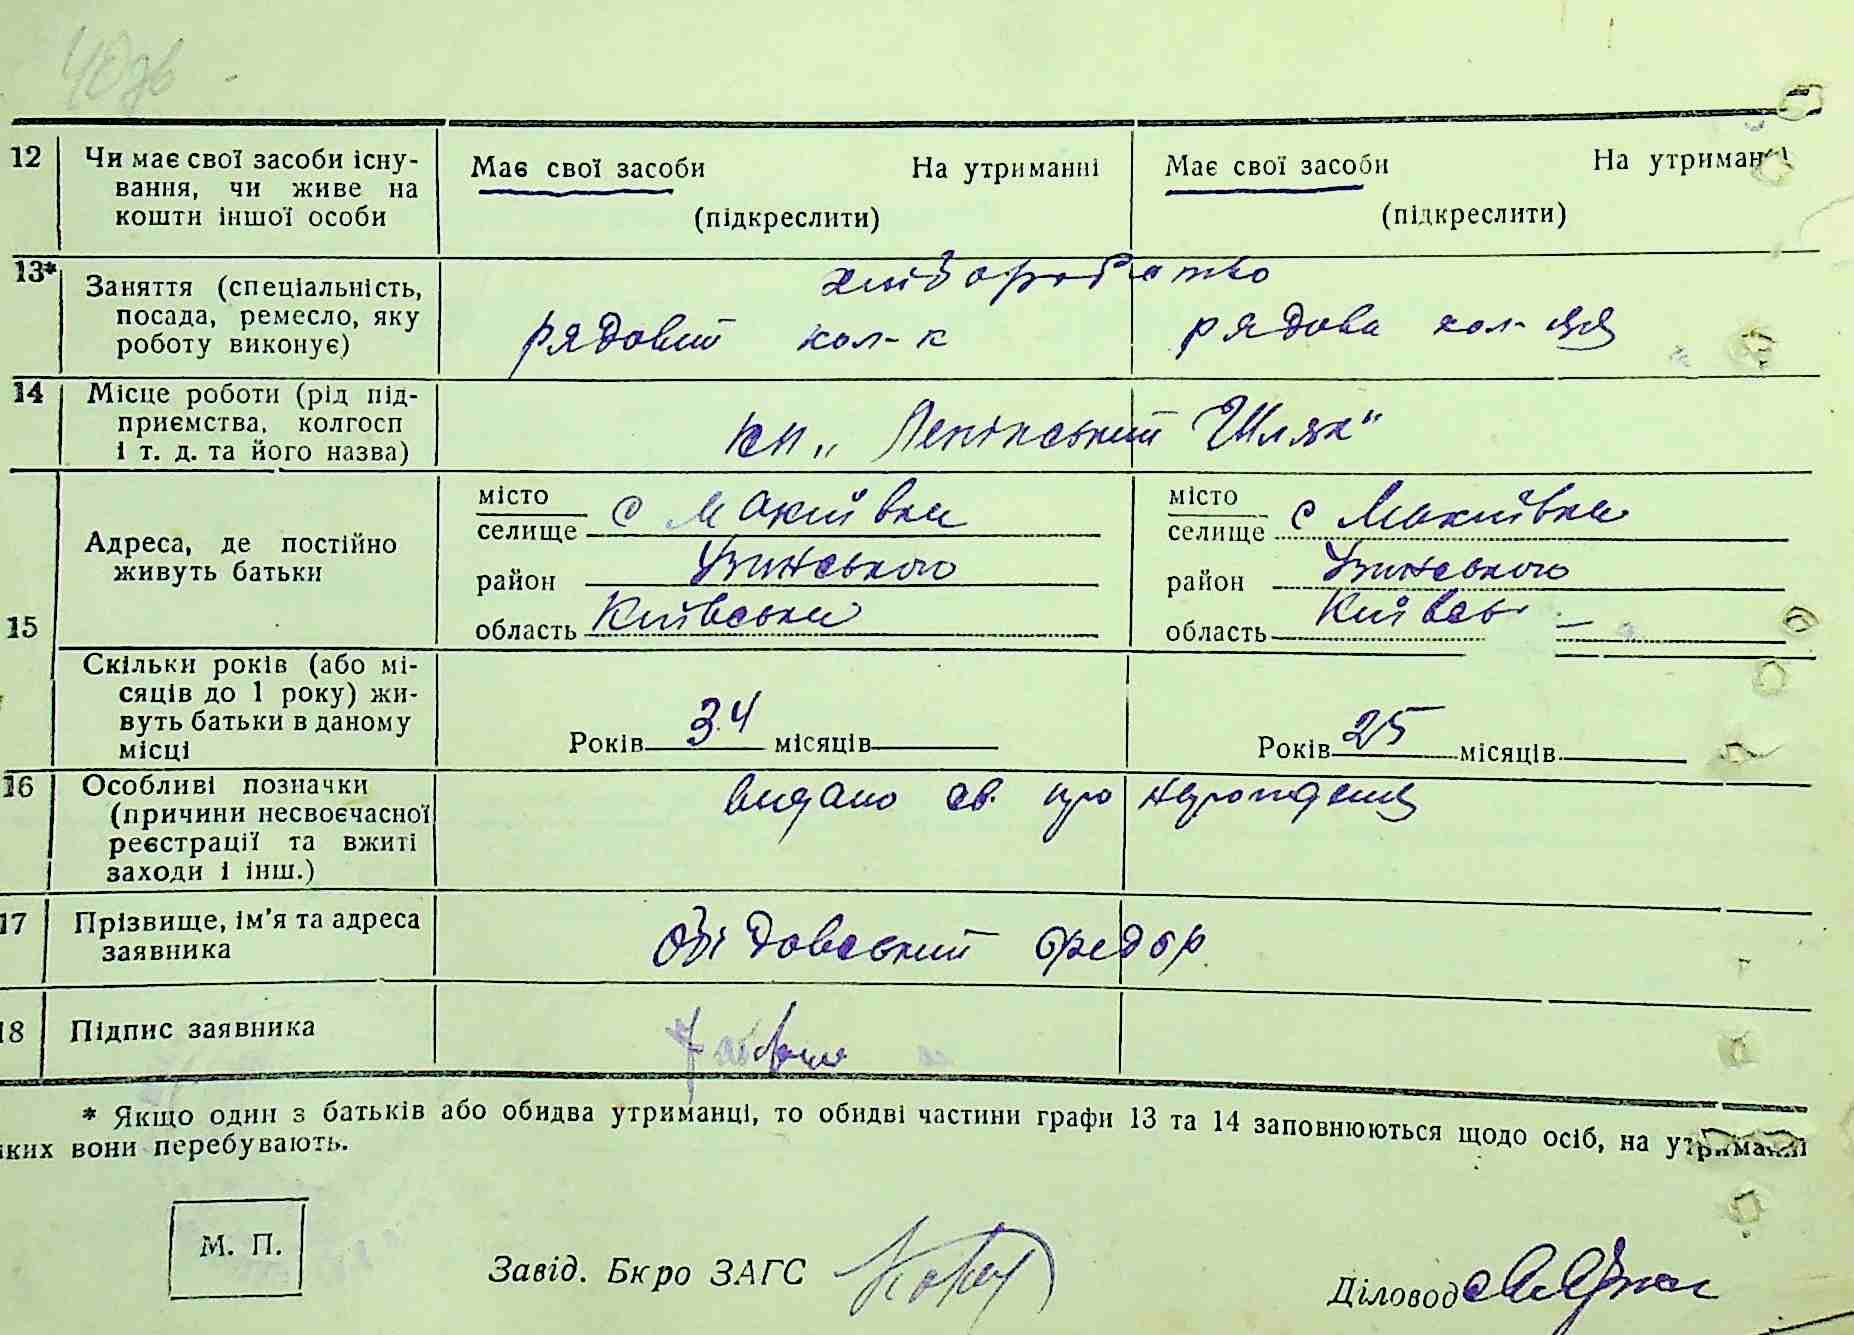 12 Чи має свої засоби існу- Має свої засоби На утриманні Має свої засоби На утриманні
вання, чи живе на
кошти іншої особи (підкреслити) (підкреслити)
13* Заняття (спеціальність, хліборобство
посада, ремесло, яку рядовий кол-к рядова кол-ця
роботу виконує)
14 Місце роботи (рід під-
приємства, колгосп кп „Ленінський Шлях"
і т. д. та його назва)
15 Адреса, де постійно
живуть батьки
місто
селище с Макиївка
район Узинського
область Київська
місто
селище с Макиївка
район Узинського
область Київсь
Скільки років (або мі-
сяців до 1 року) жи-
вуть батьки в даному
місці
Років 34 місяців
Років 25 місяців
16 Особливі позначки видано св. про народження
(причини несвоєчасної
реєстрації та вжиті
заходи і інш.)
17 Прізвище, ім'я та адреса
заявника Обідовський Федор
18 Підпис заявника
* Якщо один з батьків або обидва утриманці, то обидві частини графи 13 та 14 заповнюються щодо осіб, на утриманні
яких вони перебувають.
М. П.
Завід. Бюро ЗАГС
Діловод